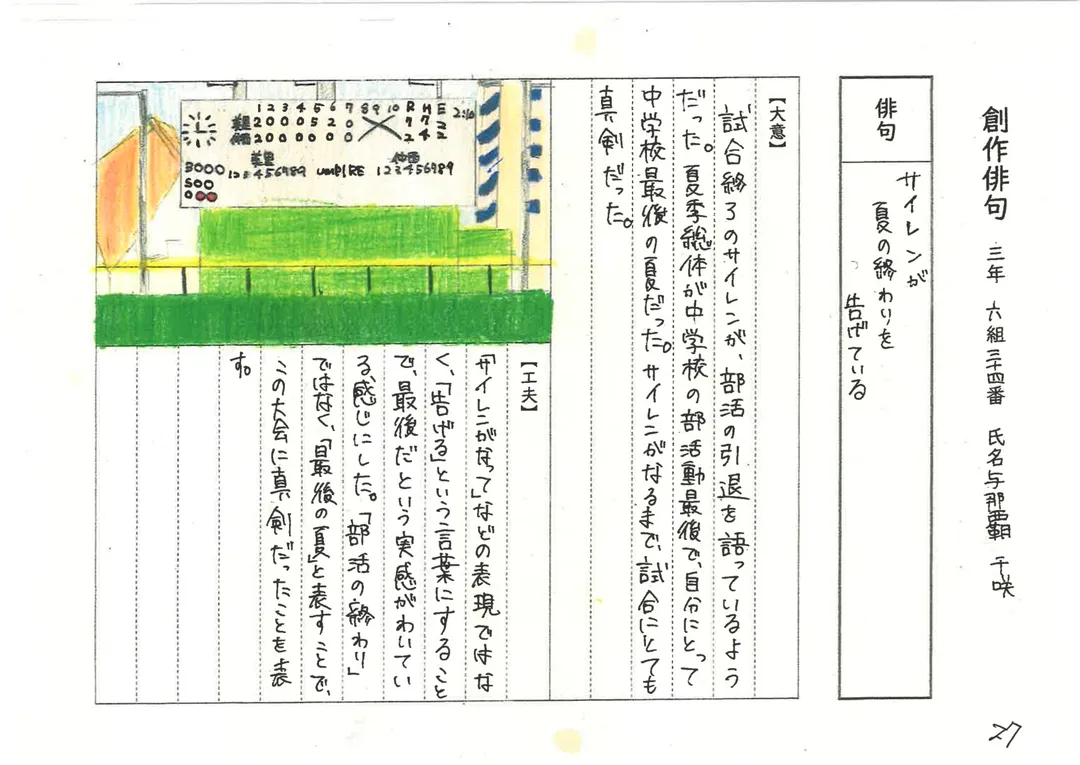 創作俳句 三年 六組三十四番 氏名与那覇 千咲
俳句
サイレンが
夏の終わりを
告げている
【大意】
試合終了のサイレンが、部活の引退を語っているよう
だった。夏季総体が中学校の部活動最後で、自分にとって
中学校最後の夏だった。サイレンがなるまで、試合にとても
真剣だった。
1 2 3 4 5 6 7 8 9 10 R H E 2:10
美里 2 0 0 0 5 2 0 7 7 2
2 0 0 0 0 0 0 2 4 2
美里
BOOO 123456789 UMPIRE 123456789
SOO
O
【工夫】
「サイレンがなって」などの表現ではな
く、「告げる」という言葉にすること
で、最後だという実感がわいてい
る、感じにした。「部活の終わり」
ではなく、「最後の夏」と表すことで、
この大会に真剣だったことを表
す。
27